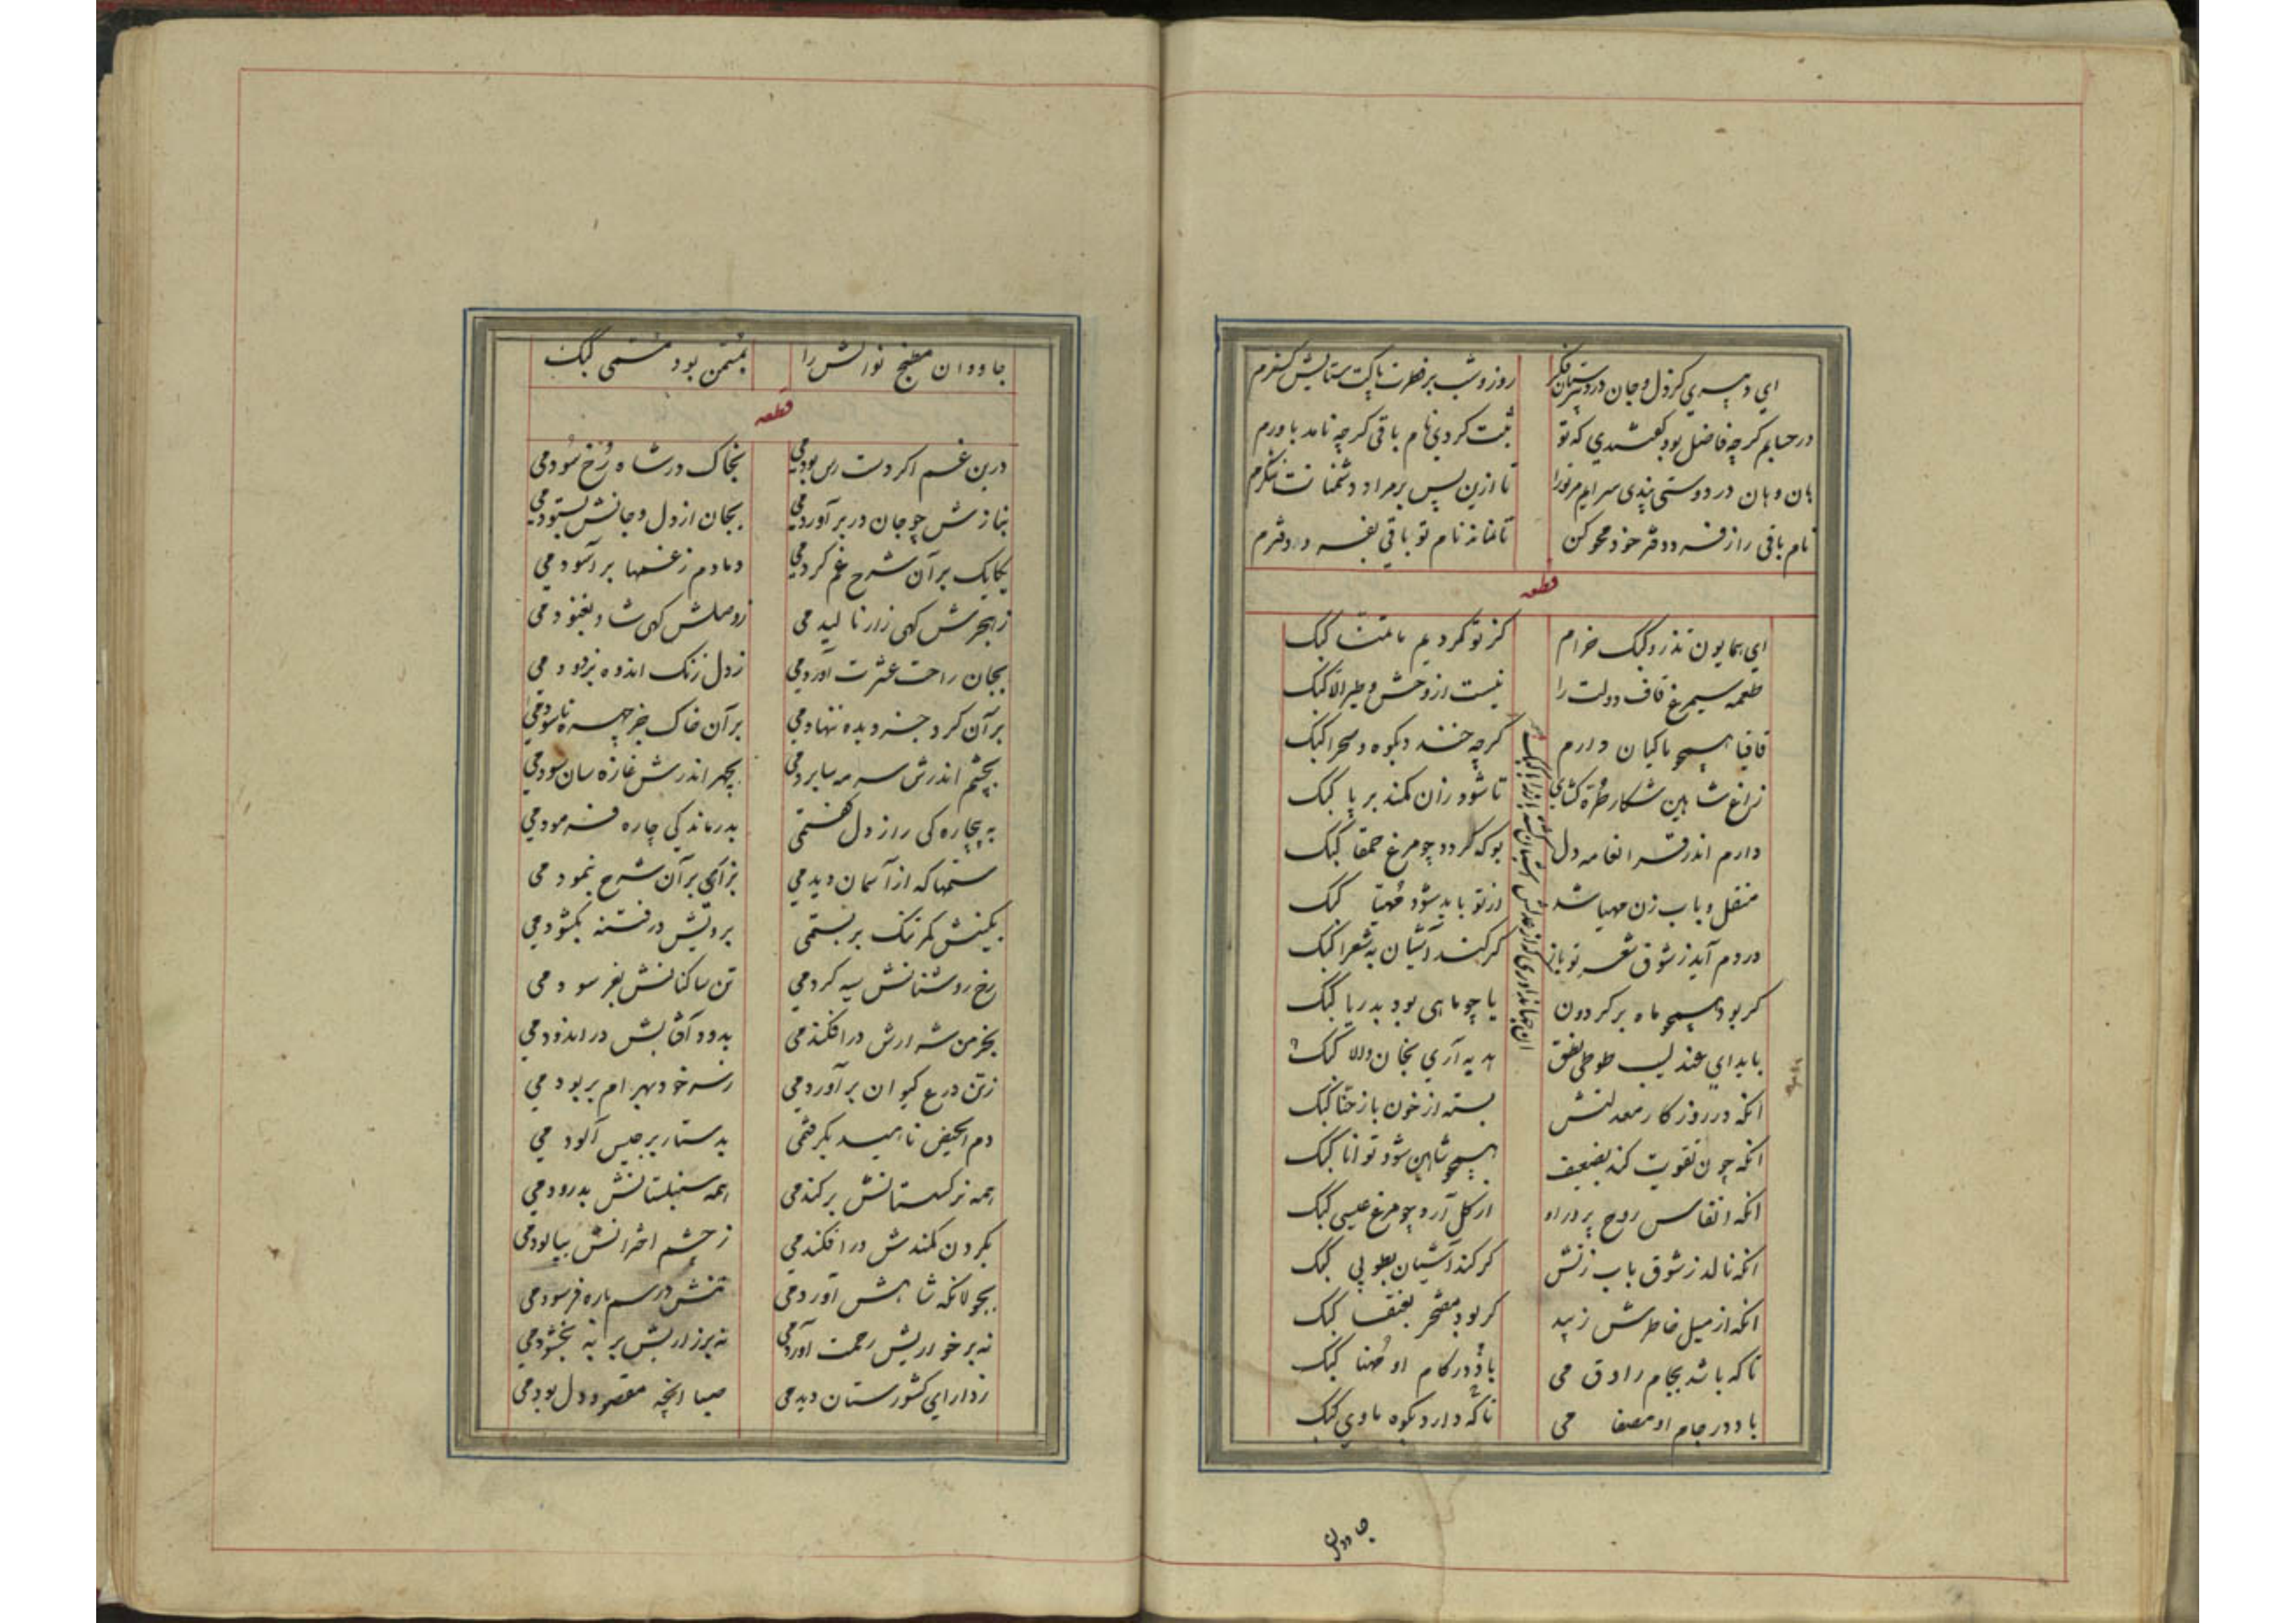 ای دبیری کز دل و جان در دبیرستان فکر روز و شب بر فطرت پاکت ستایش گسترم
در حسابم گرچه فاضل بود گفتندی که تو ثبت کردی نام باقی گرچه نامد باورم
هان و هان در دوستی پندی سرایم مر تورا تا ازین پس بر مراد دشمنانت ننگرم
نام باقی را ز فرد و دفتر خود محو کن تا نماند نام تو باقی بفرد و دفترم
قطعه
ای همایون تذرو کبک خرام کز تو کردیم ما تمنا کبک
طعمه سیمرغ قاف دولت را نیست از وحش و طیر الا کبک
قافیا همچو ماکیان دارم گرچه خندد بکوه و صحرا کبک
زاغ شاهین شکار طره گشای تا شود زان کمند بر پا کبک
دارم اندر دل بو که گردد چو مرغ حمقا کبک
منقل و باب زن مهیا شد از تو باید شود مهیا کبک
در دم آید ز شوق شعر تو باز گر کند آشیان به شعرا کبک
گر بود همچو ماه بر گردون یا چو ماهی بود بدریا کبک
باید ای عندلیب طوطی نطق هدیه آری بخان والا کبک
آن جهانداوری که از عدلش آشیان
آنکه در روزگار معدلتش بسته از خون باز حنا کبک
آنکه چون تقویت کند بضعیف همچو شاهین شود توانا کبک
آنکه انفاس روح پرور او از گل آرد چو مرغ عیسی کبک
آنکه نالد ز شوق باب زنش گر کند آشیان بطوبی کبک
آنکه از میل خاطرش زیبد گر بود مفتخر بعنقا کبک
تا که باشد بجام راوق می باد در کام او مهنا کبک
باد در جام او مصفا می تا که دارد بکوه ماوی کبک
جاودان
جاودان مطبخ نوالش را بثمن بود مسمی کبک
قطعه
درین غم اگر دست رس بودمی بخاک در شاه رخ سودمی
بنازش چو جان در بر آوردمی بجان از دل و جانش بستودمی
یکایک بر آن شرح غم کردمی دمادم ز غمها بر آسودمی
ز هجرش گهی زار نالیدمی ز وصلش گهی شاد بغنودمی
بجان راحت عشرت آوردمی ز دل زنگ اندوه بزدودمی
بر آن گرد جز دیده ننهادمی بر آن خاک جز چهره ناسودمی
بچشم اندرش سرمه سا بردمی بچهر اندرش غازه سان سودمی
به بیچارگی راز دل گفتمی بدرماندگی چاره فرمودمی
ستمها که از آسمان دیدمی بزاری بر آن شرح بنمودمی
بکینش کمر تنگ بربستمی برویش در فتنه بگشودمی
رخ روشنانش سیه کردمی تن ساکنانش بفرسودمی
بخرمن شرارش در افکندمی بدود آفتابش در اندودمی
ز تن درع کیوان بر آوردمی ز سر خود بهرام بربودمی
دم الحیض ناهید بگرفتمی بدستار برجیس آلودمی
همه نرگستانش برکندمی همه سنبلستانش بدرودمی
بگردن کمندش در افکندمی ز چشم اخترانش بپالودمی
بجولانگه شاهش آوردمی تنش در سم باره فرسودمی
نه بر خواریش رحمت آوردمی نه بر زاریش بر نه بخشودمی
ز دارای کشورستان دیدمی صبا آنچه مقصود دل بودمی